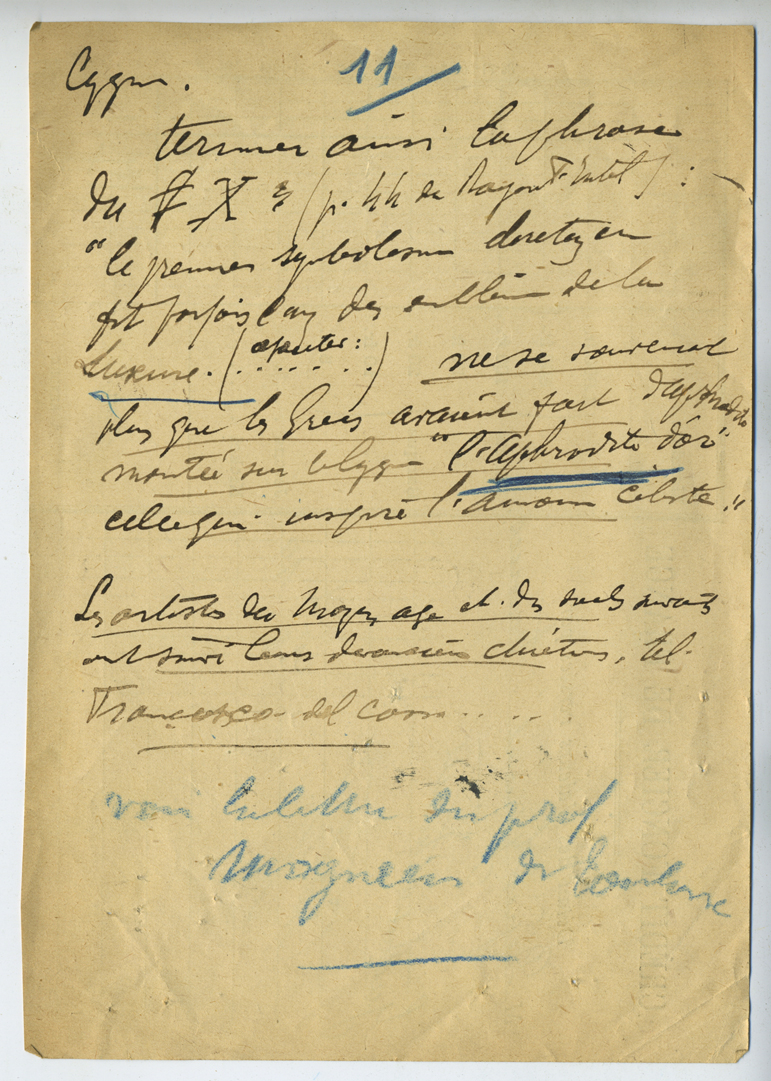 11
Cygne.
terminer ainsi la phrase
du § X (p. 44 du Rayont. Intel.) :
"le premier symbolisme chrétien
fit parfois l'un des emblèmes de la
Luxure. (ajouter: ......) ne se souvenant
plus que les Grecs avaient fort d'aphrodite
montée sur le cygne "l'aphrodite d'or"
celle qui inspire l'amour céleste."
Les artistes du Moyen age et des siècles suivants
ont suivi leurs devanciers chrétiens, tel
Francesco del Cossa ....
voir la lettre du prof
de Toulouse